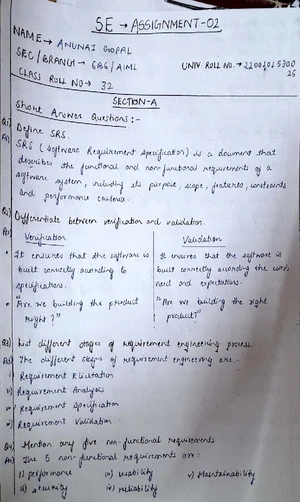 SE → ASSIGNMENT-02
NAME → ANUNAI GOPAL
SEC/BRANCH → 6BG/AIML
UNIV ROLL NO. → 22001015300
25
CLASS ROLL NO → 32
SECTION-A
Short Answer Questions:-
Q1) Define SRS.
A1) SRS (Software Requirement Specification) is a document that
describes the functional and non functional requirements of a
software system, including its purpose, scope, features, constraints
and performance criteria.
Q2) Differentiate between verification and validation.
A2) Verification
• It ensures that the software is
built correctly according to
specifications.
• "Are we building the product
right?"
Validation
It ensures that the software is
built correctly according the users
need and expectations.
"Are we building the right
product?"
Q3) List different stages of requirement engineering process.
A3) The different stages of requirement engineering are:-
i) Requirement Elicitation
ii) Requirement Analysis
iii) Requirement Specification
iv) Requirement Validation
Q4) Mention any five non-functional requirements
A4) The 5 non-functional requirements are:
i) performance iii) usability v) Maintainability
ii) security iv) reliability